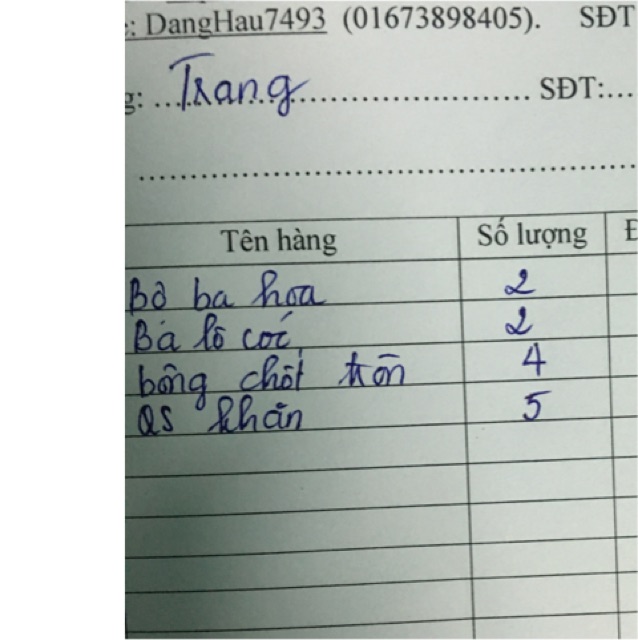 : DangHau7493 (01673898405). SĐT
g: Trang SĐT:
Tên hàng Số lượng
Bộ ba hoa 2
Ba lô cóc 2
bông chốt tròn 4
QS khăn 5